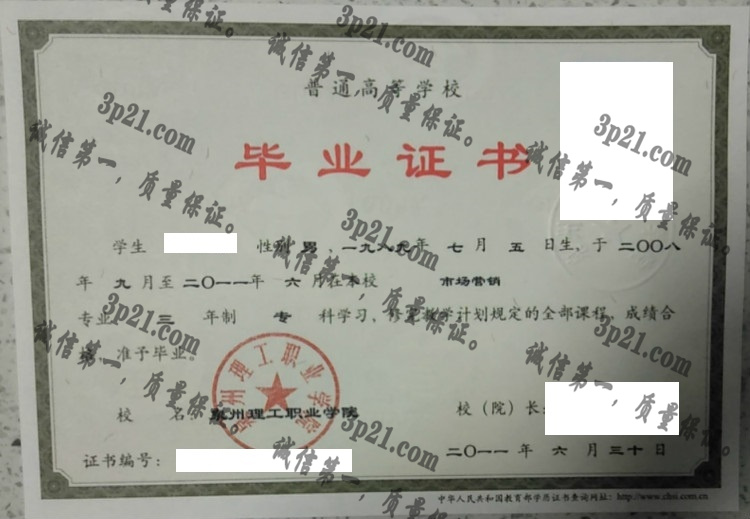 普通高等学校
毕业证书
学生 性别 男，一九八九年 七 月 五 日生，于 二〇〇八
年 九 月至 二〇一一年 六 月在本校 市场营销
专业 三 年制 专 科学习，修完教学计划规定的全部课程，成绩合
格，准予毕业。
泉州理工职业学院
校 名：泉州理工职业学院 校（院）长：
证书编号： 二〇一一年 六 月 三十 日
中华人民共和国教育部学历证书查询网址：http://www.chsi.com.cn
3p21.com
诚信第一，质量保证。
3p21.com
诚信第一，质量保证。
3p21.com
诚信第一，质量保证。
3p21.com
诚信第一，质量保证。
3p21.com
诚信第一，质量保证。
3p21.com
诚信第一，质量保证。
3p21.com
诚信第一，质量保证。
3p21.com
诚信第一，质量保证。
3p21.com